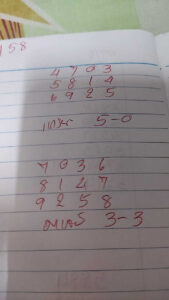 158
4 7 0 3
5 8 1 4
6 9 2 5
5-0
7 0 3 6
8 1 4 7
9 2 5 8
3-3